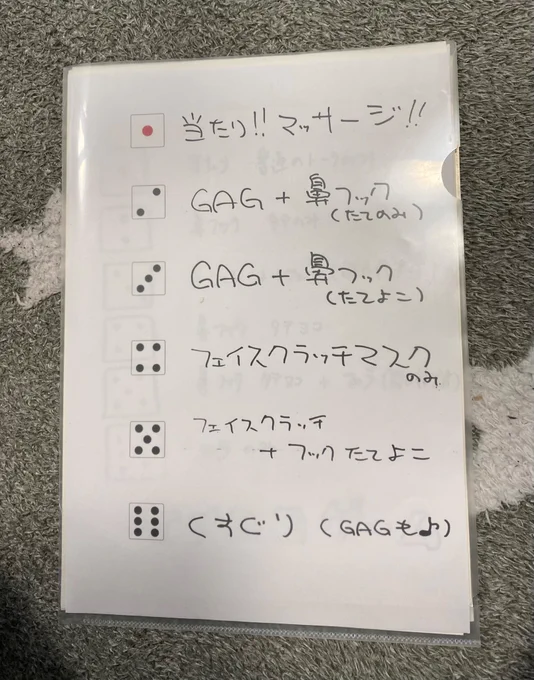 当たり!! マッサージ!!
GAG + 鼻フック
(たてのみ)
GAG + 鼻フック
(たてよこ)
フェイスクラッチマスク
のみ
フェイスクラッチ
+ フック たてよこ
くすぐり (GAGも♪)